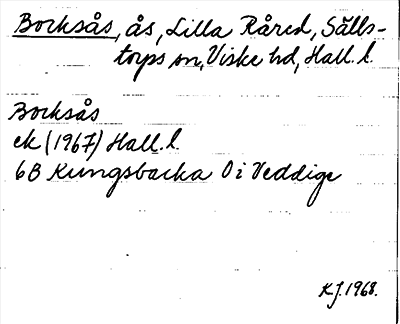 Bocksås, ås, Lilla Råred, Sälls-
torps sn, Viske hd, Hall. l.
Bocksås
ek (1967) Hall. l.
6B Kungsbacka 0 i Veddige
K.J. 1968.